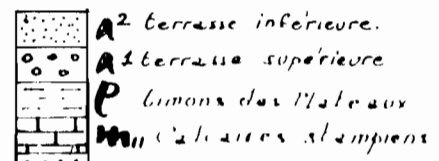 a² terrasse inférieure.
a1 terrasse supérieure
P Limons des Plateaux
m₁₁ Calcaires stampiens